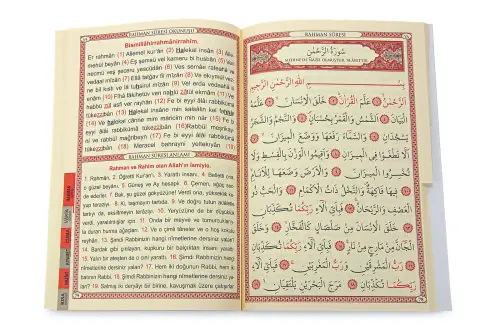 RAHMAN SÛRESİ OKUNUŞU
Bismillâhirrahmânirrahîm.
Er rahmân (1) Allemel kur'ân (2) Halekal insân (3) Alle-
mehül beyân (4) Eş şemsü vel kameru bi husbân (5) Ven
necmü veş şeceru yescüdân (6) Ves semâe rafeahâ ve
vedaal mîzân (7) Ellâ tetğav fil mîzân (8) Ve ekıymul vez-
ne bil kıstı ve lâ tuhsirul mîzân (9) Vel erda vedaahâ lil
enâm (10) Fîhâ fâkihetüv ven nahlü zâtül ekmâm (11) Vel
habbü zül asfi ver rayhân (12) Fe bi eyyi âlâi rabbikümâ
tükezzibân (13) Halekal insâne min salsâlin kel fehhâr
(14) Ve halekal cânne min mâricim min nâr (15) Fe bi
eyyi âlâi rabbikümâ tükezzibân (16) Rabbül meşrikay-
ni ve rabbül mağribeyn (17) Fe bi eyyi âlâi rabbikümâ
tükezzibân (18) Meracel bahrayni yeltekıyân (19)
RAHMAN SÛRESİ ANLAMI
Rahman ve Rahim olan Allah'ın ismiyle.
1. Rahmân. 2. Öğretti Kur'an'ı. 3. Yarattı insanı. 4. Belletti ona,
o güzel beyânı. 5. Güneş ve Ay hesaplı. 6. Çemen, ağaç sec-
de ederler. 7. Bak, şu göğe yükseltti ona! Verdi ona, yüksek
8. Ki, taşmayın tartıda. 9. Ve doğru tutun adâletle
tartıyı da, aksitmeyin terazîyi. 10. Yeryüzünü de
11. Onda bir meyve ve tomurcuklar-
la duran hurma ağaçları. 12. Ve o çimli tâneler ve o hoş kokulu
reyhân. 13. Şimdi Rabbinizin hangi nîmetlerine dersiniz yalan!
14. Bardak gibi pişmiş, kupkuru bir balçıktan insanı yarattı.
15. Yalın bir ateşten de o cini yarattı. 16. Şimdi Rabbinizin hangi
nîmetlerine dersiniz yalan! 17. Hem iki doğunun Rabbi, hem iki
batının Rabbi. 18. Şimdi Rabbinizin hangi nîmetlerine dersiniz ya-
lan! 19. Salmış iki deryâyı bir birine, kavuşmak üzere çatışırlar
RAHMAN SÛRESİ
سُورَةُ الرَّحْمٰنِ
بِسْمِ اللّٰهِ الرَّحْمٰنِ الرَّحِيمِ
اَلرَّحْمٰنُ عَلَّمَ الْقُرْاٰنَ خَلَقَ الْاِنْسَانَ عَلَّمَهُ
الْبَيَانَ اَلشَّمْسُ وَالْقَمَرُ بِحُسْبَانٍ وَالنَّجْمُ وَالشَّجَرُ
يَسْجُدَانِ وَالسَّمَاءَ رَفَعَهَا وَوَضَعَ الْمِيزَانَ
اَلَّا تَطْغَوْا فِي الْمِيزَانِ وَاَقِيمُوا الْوَزْنَ بِالْقِسْطِ وَلَا
تُخْسِرُوا الْمِيزَانَ وَالْاَرْضَ وَضَعَهَا لِلْاَنَامِ
فِيهَا فَاكِهَةٌ وَالنَّخْلُ ذَاتُ الْاَكْمَامِ وَالْحَبُّ ذُو
الْعَصْفِ وَالرَّيْحَانُ فَبِاَيِّ اٰلَاءِ رَبِّكُمَا تُكَذِّبَانِ
خَلَقَ الْاِنْسَانَ مِنْ صَلْصَالٍ كَالْفَخَّارِ وَخَلَقَ
الْجَانَّ مِنْ مَارِجٍ مِنْ نَارٍ فَبِاَيِّ اٰلَاءِ رَبِّكُمَا
تُكَذِّبَانِ رَبُّ الْمَشْرِقَيْنِ وَرَبُّ الْمَغْرِبَيْنِ فَبِاَيِّ اٰلَاءِ
رَبِّكُمَا تُكَذِّبَانِ مَرَجَ الْبَحْرَيْنِ يَلْتَقِيَانِ